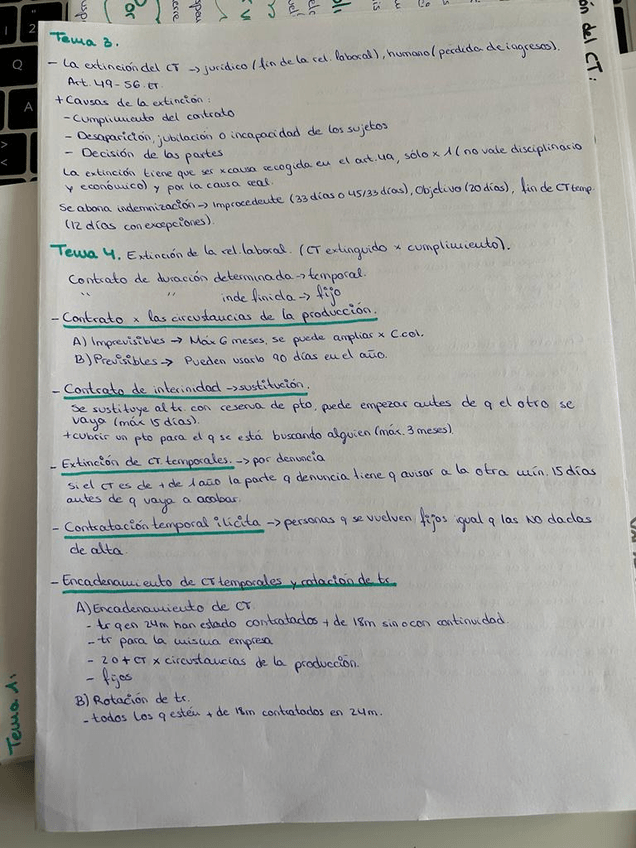 Tema 3.
- La extinción del CT → jurídico (fin de la rel. laboral), humano (perdida de ingresos).
Art. 49-56 ET
+ Causas de la extinción:
- Cumplimiento del contrato
- Desaparición, jubilación o incapacidad de los sujetos
- Decisión de las partes
La extinción tiene que ser x causa recogida en el art. 49, sólo x 1 (no vale disciplinario
y económico) y por la causa real.
Se abona indemnización → Improcedente (33 días o 45/33 días), Objetivo (20 días), fin de CT temp.
(12 días con excepciones).
Tema 4. Extinción de la rel. laboral. (CT extinguido x cumplimiento).
Contrato de duración determinada → temporal.
" " indefinida → fijo
- Contrato x las circustancias de la producción.
A) Imprevisibles → Máx 6 meses, se puede ampliar x C.col.
B) Previsibles → Pueden usarlo 90 días en el año.
- Contrato de interinidad → sustitución.
Se sustituye al tr. con reserva de pto, puede empezar antes de q el otro se
vaya (máx 15 días).
+ cubrir un pto para el q se está buscando alguien (máx. 3 meses)
- Extinción de CT temporales. → por denuncia
Si el CT es de + de 1 año la parte q denuncia tiene q avisar a la otra mín. 15 días
antes de q vaya a acabar.
- Contratación temporal ilícita → personas q se vuelven fijos igual q las NO dadas
de alta.
- Encadenamiento de CT temporales y rotación de tr.
A) Encadenamiento de CT
- tr q en 24m han estado contratados + de 18m sin o con continuidad.
- tr para la misma empresa
- 2 o + CT x circustancias de la producción.
- fijos
B) Rotación de tr.
- todos los q estén + de 18m contratados en 24m.
Tema 1.
ón del CT: